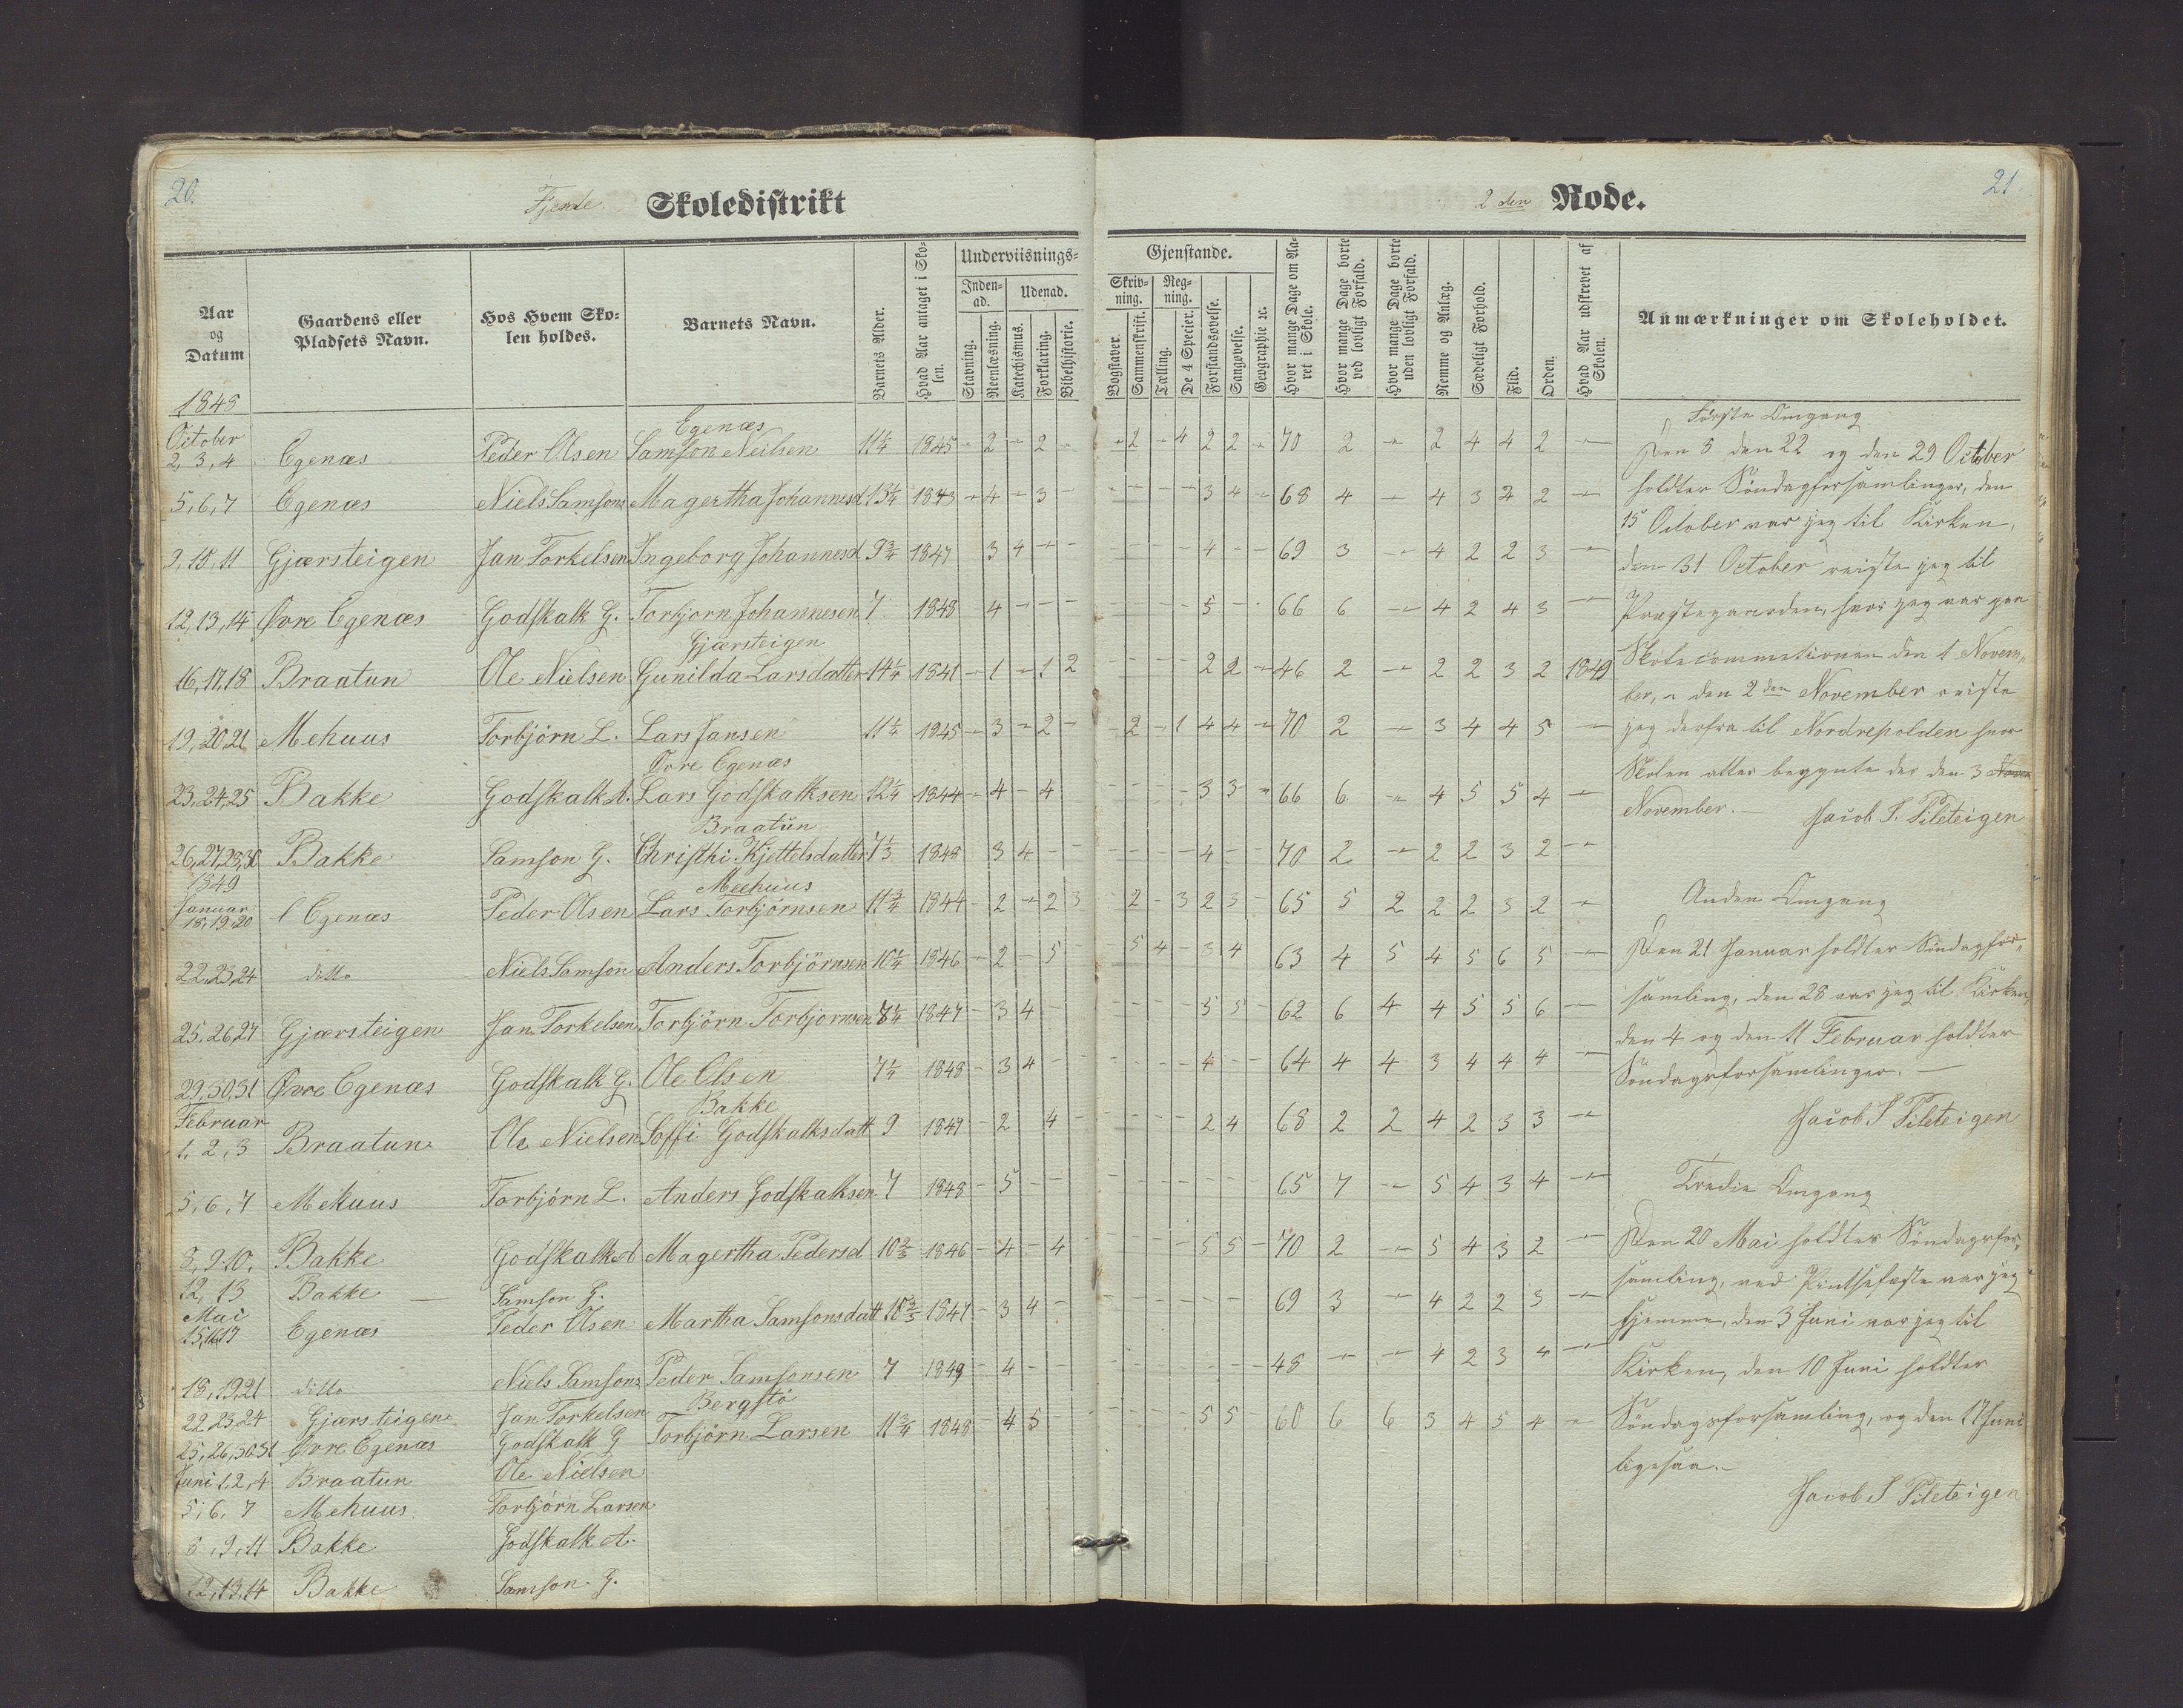 20.
Fjerde Skoledistrikt
2 den Rode.
21.
Aar og Datum
Gaardens eller Pladsets Navn.
Hos Hvem Skolen holdes.
Barnets Navn.
Barnets Alder.
Hvad Aar antaget i Skolen.
Underviisnings-
Gjenstande.
Inden-ad.
Udenad.
Stavning.
Reenlæsning.
Katechismus.
Forklaring.
Bibelhistorie.
Skriv-ning.
Reg-ning.
Bogstaver.
Sammenskrift.
Tælling.
De 4 Specier.
Forstandsøvelse.
Sangøvelse.
Geographie ꝛc.
Hvor mange Dage om Aaret i Skole.
Hvor mange Dage borte ved lovligt Forfald.
Hvor mange Dage borte uden lovligt Forfald.
Nemme og Anlæg.
Sædeligt Forhold.
Flid.
Orden.
Hvad Aar udskrevet af Skolen.
Anmærkninger om Skoleholdet.
1848
October
Egenæs
2, 3, 4 Egenæs Peder Olsen Samson Neilsen 11 1/4 1845 - 2 - 2 - - 2 - 4 2 2 - 70 2 - 2 4 4 2 -
5, 6, 7 Egenæs Niels Samsons Magertha Johannesd 13 1/4 1843 - 4 - 3 - - - - - 3 4 - 68 4 - 4 3 2 2 -
9, 10, 11 Gjærsteigen Jan Torkelsen Ingeborg Johannesd 9 3/4 1847 3 4 - - - - - - 4 - - 69 3 - 4 2 2 3 -
12, 13, 14 Øvre Egenæs Godskalk G. Torbjorn Johannesen 7 1848 4 - - - - - - - 5 - - 66 6 - 4 2 4 3 -
Gjærsteigen
16, 17, 18 Braatun Ole Nielsen Gunilda Larsdatter 14 1/4 1841 - 1 - 1 2 - - - - 2 2 - 46 2 - 2 2 3 2 1849
19, 20, 21 Mehuus Torbjörn L. Lars Jansen 11 1/4 1845 - 3 - 2 - - 2 - 1 4 4 - 70 2 - 3 4 4 5 -
Øvre Egenæs
23, 24, 25 Bakke Godskalk A. Lars Godskalksen 12 1/4 1844 - 4 - 4 - - - - 3 3 - 66 6 - 4 5 5 4 -
Braatun
26, 27, 28, 30 Bakke Samson G. Christhi Kjettelsdatter 7 1/3 1848 3 4 - - - - - - 4 - - 70 2 - 2 2 3 2 -
1849
Meehuus
Januar
18, 19, 20 Egenæs Peder Olsen Lars Torbjörnsen 11 3/4 1844 - 2 - 2 3 - 2 - 3 2 3 - 65 5 2 2 2 3 2 -
22, 23, 24 ditto Niels Samson Anders Torbjörnsen 10 1/4 1846 - 2 - 5 - - 5 4 - 3 4 63 4 5 4 5 6 5 -
25, 26, 27 Gjærsteigen Jan Torkelsen Torbjörn Torbjornsen 8 1/4 1847 - 3 4 - - - - - 5 5 - 62 6 4 4 5 5 6 -
29, 30, 31 Øvre Egenæs Godskalk G. Ole Olsen 7 1/4 1848 - 3 4 - - - - - 4 - - 64 4 4 3 4 4 4 -
Februar
Bakke
1, 2, 3 Braatun Ole Nielsen Soffi Godskalksdatt 9 1847 - 2 4 - - - - - 2 4 68 2 2 4 2 3 3 -
5, 6, 7 Mehuus Torbjörn L. Anders Godskalksen 7 1848 - 5 - - - - - - - - - 65 7 - 5 4 3 4 -
8, 9, 10. Bakke Godskalk A Magertha Pedersd 10 2/3 1846 - 4 - 4 - - - - 5 5 - 70 2 - 5 4 3 2 -
12, 13 Bakke Samson G.
Mai
15, 16, 17 Egenæs Peder Olsen Martha Samsonsdatt 10 2/3 1847 - 3 4 - - - - - - - - 69 3 - 4 2 2 3 -
18, 19, 21 ditto Niels Samsons Peder Samsonsen 7 1849 - 4 - - - - - - - - - 48 - - 4 2 3 4 -
Bergstö
22, 23, 24 Gjærsteigen Jan Torkelsen
25, 26, 30, 31 Øvre Egenæs Godskalk G Torbjörn Larsen 11 3/4 1848 - 4 5 - - - - - 5 5 60 6 6 3 4 5 4 -
Juni 1, 2, 4 Braatun Ole Nielsen
5, 6, 7 Mehuus Torbjörn Larsen
8, 9, 11 Bakke Godskalk A.
12, 13, 14 Bakke Samson G.
Förste Omgang
Den 8 den 22 og den 29 October
holdtes Söndagforsamlinger, den
15 October var jeg til Kirken,
den 31 October reiste jeg til
Præstegaarden, hvor jeg var paa
Skolecommetionen den 1 Novem-
ber, den 2den November reiste
jeg derfra til Nordrepolden hvor
Skolen atter begynte der den 3
November. - Jacob S. Pileteigen
Anden Omgang
Den 21 Januar holdtes Söndagfor-
samling, den 28 var jeg til Kirken,
den 4 og den 11 Februar holdtes
Söndagsforsamlinger. -
Jacob S Pileteigen
Tredie Omgang
Den 20 Mai holdtes Söndagsfor-
samling, ved Pintsefæste var jeg
hjemme, den 3 Juni var jeg til
Kirken, den 10 Juni holdtes
Söndagsforsamling, og den 17 Juni
ligesaa. -
Jacob S Pileteigen